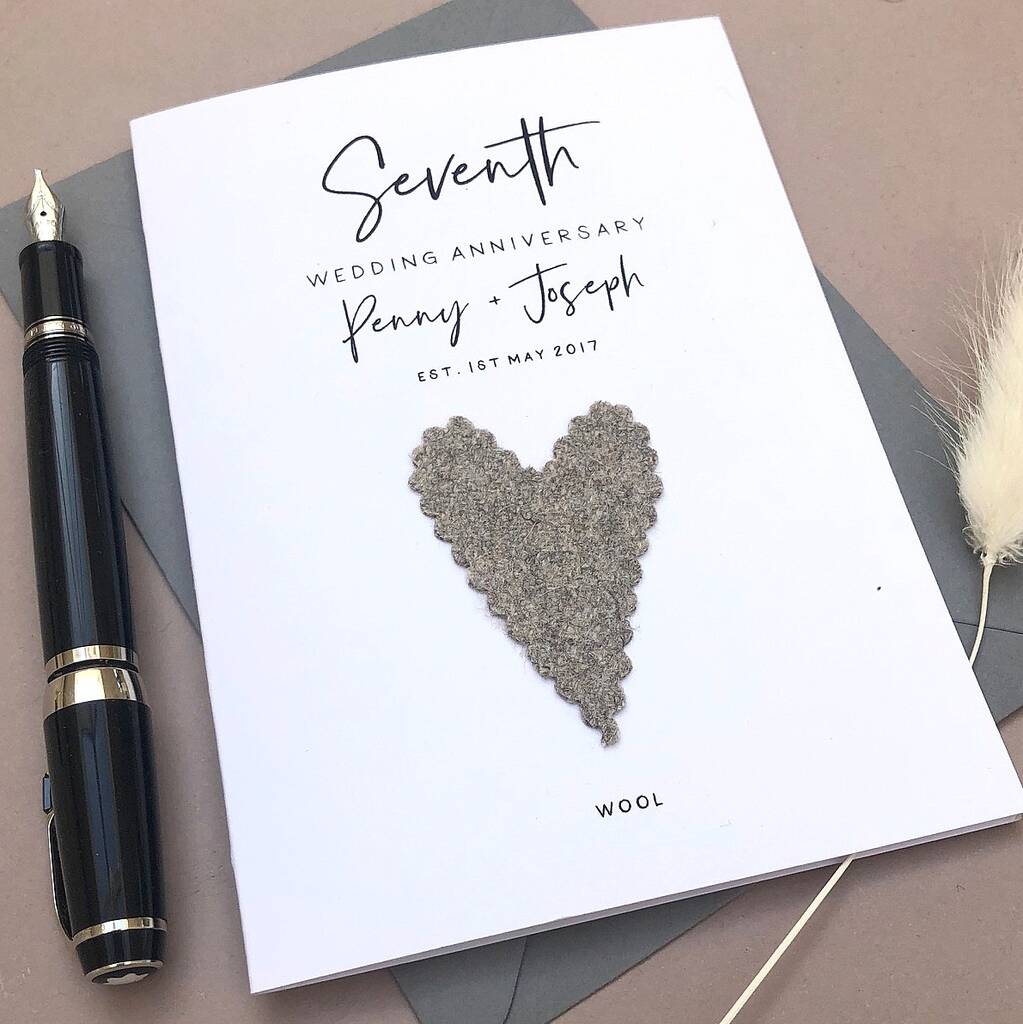 Seventh
WEDDING ANNIVERSARY
Penny + Joseph
EST. 1ST MAY 2017
WOOL